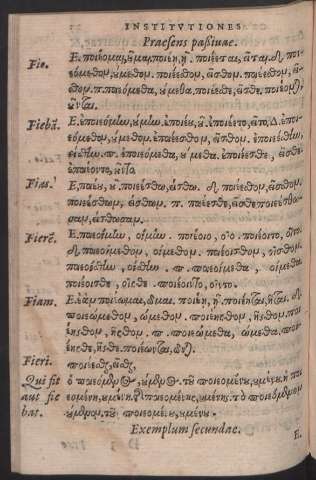 INSTITVTIONES
Præsens paßiuæ.
Fio. Ε. ποιέομαι, οῦμαι. ποιέῃ, ῇ. ποιέεται, εῖται. Δ. ποι-
εόμεθον, ούμεθον. ποιέεσθον, εῖσθον. ποιέεσθον, εῖ-
σθον. π. ποιεόμεθα, ούμεθα. ποιέεσθε, εῖσθε. ποιέονται,
οῦνται.
Fiebã. Ε. ἐποιεόμην, ούμην. ἐποιέου, οῦ. ἐποιέετο, εῖτο. Δ. ἐποι-
εόμεθον, ούμεθον. ἐποιέεσθον, εῖσθον. ἐποιεέσθην,
είσθην. π. ἐποιεόμεθα, ούμεθα. ἐποιέεσθε, εῖσθε.
ἐποιέοντο, οῦντο.
Fias. Ε. ποιέου, οῦ. ποιεέσθω, είσθω. Δ. ποιέεσθον, εῖσθον.
ποιεέσθων, είσθων. π. ποιέεσθε, εῖσθε ποιεέσθω-
σαν, είσθωσαν.
Fierẽ. Ε. ποιεοίμην, οίμην. ποιέοιο, οῖο. ποιέοιτο, οῖτο.
Δ. ποιεοίμεθον, οίμεθον. ποιέοισθον, οῖσθον.
ποιεοίσθην, οίσθην. π. ποιεοίμεθα, οίμεθα
ποιέοισθε, οῖσθε. ποιέοιντο, οῖντο.
Fiam. Ε. ἐὰν ποιέωμαι, ῶμαι. ποιέῃ, ῇ. ποιέηται, ῆται. Δ.
ποιεώμεθον, ώμεθον. ποιέησθον, ῆσθον. ποι-
έησθον, ῆσθον. π. ποιεώμεθα, ώμεθα. ποι-
έησθε, ῆσθε. ποιέωνται, ῶνται.
Fieri. ποιέεσθαι, εῖσθαι.
Qui fit ὁ ποιεόμενος, ούμενος. τοῦ ποιεομένου, ουμένου. ἡ ποι
aut fie εομένη, ουμένη. τῆς ποιεομένης, ουμένης. τὸ ποιεόμενον
bat. ούμενον. τοῦ ποιεομένου, ουμένου.
Exemplum secundæ.
E.